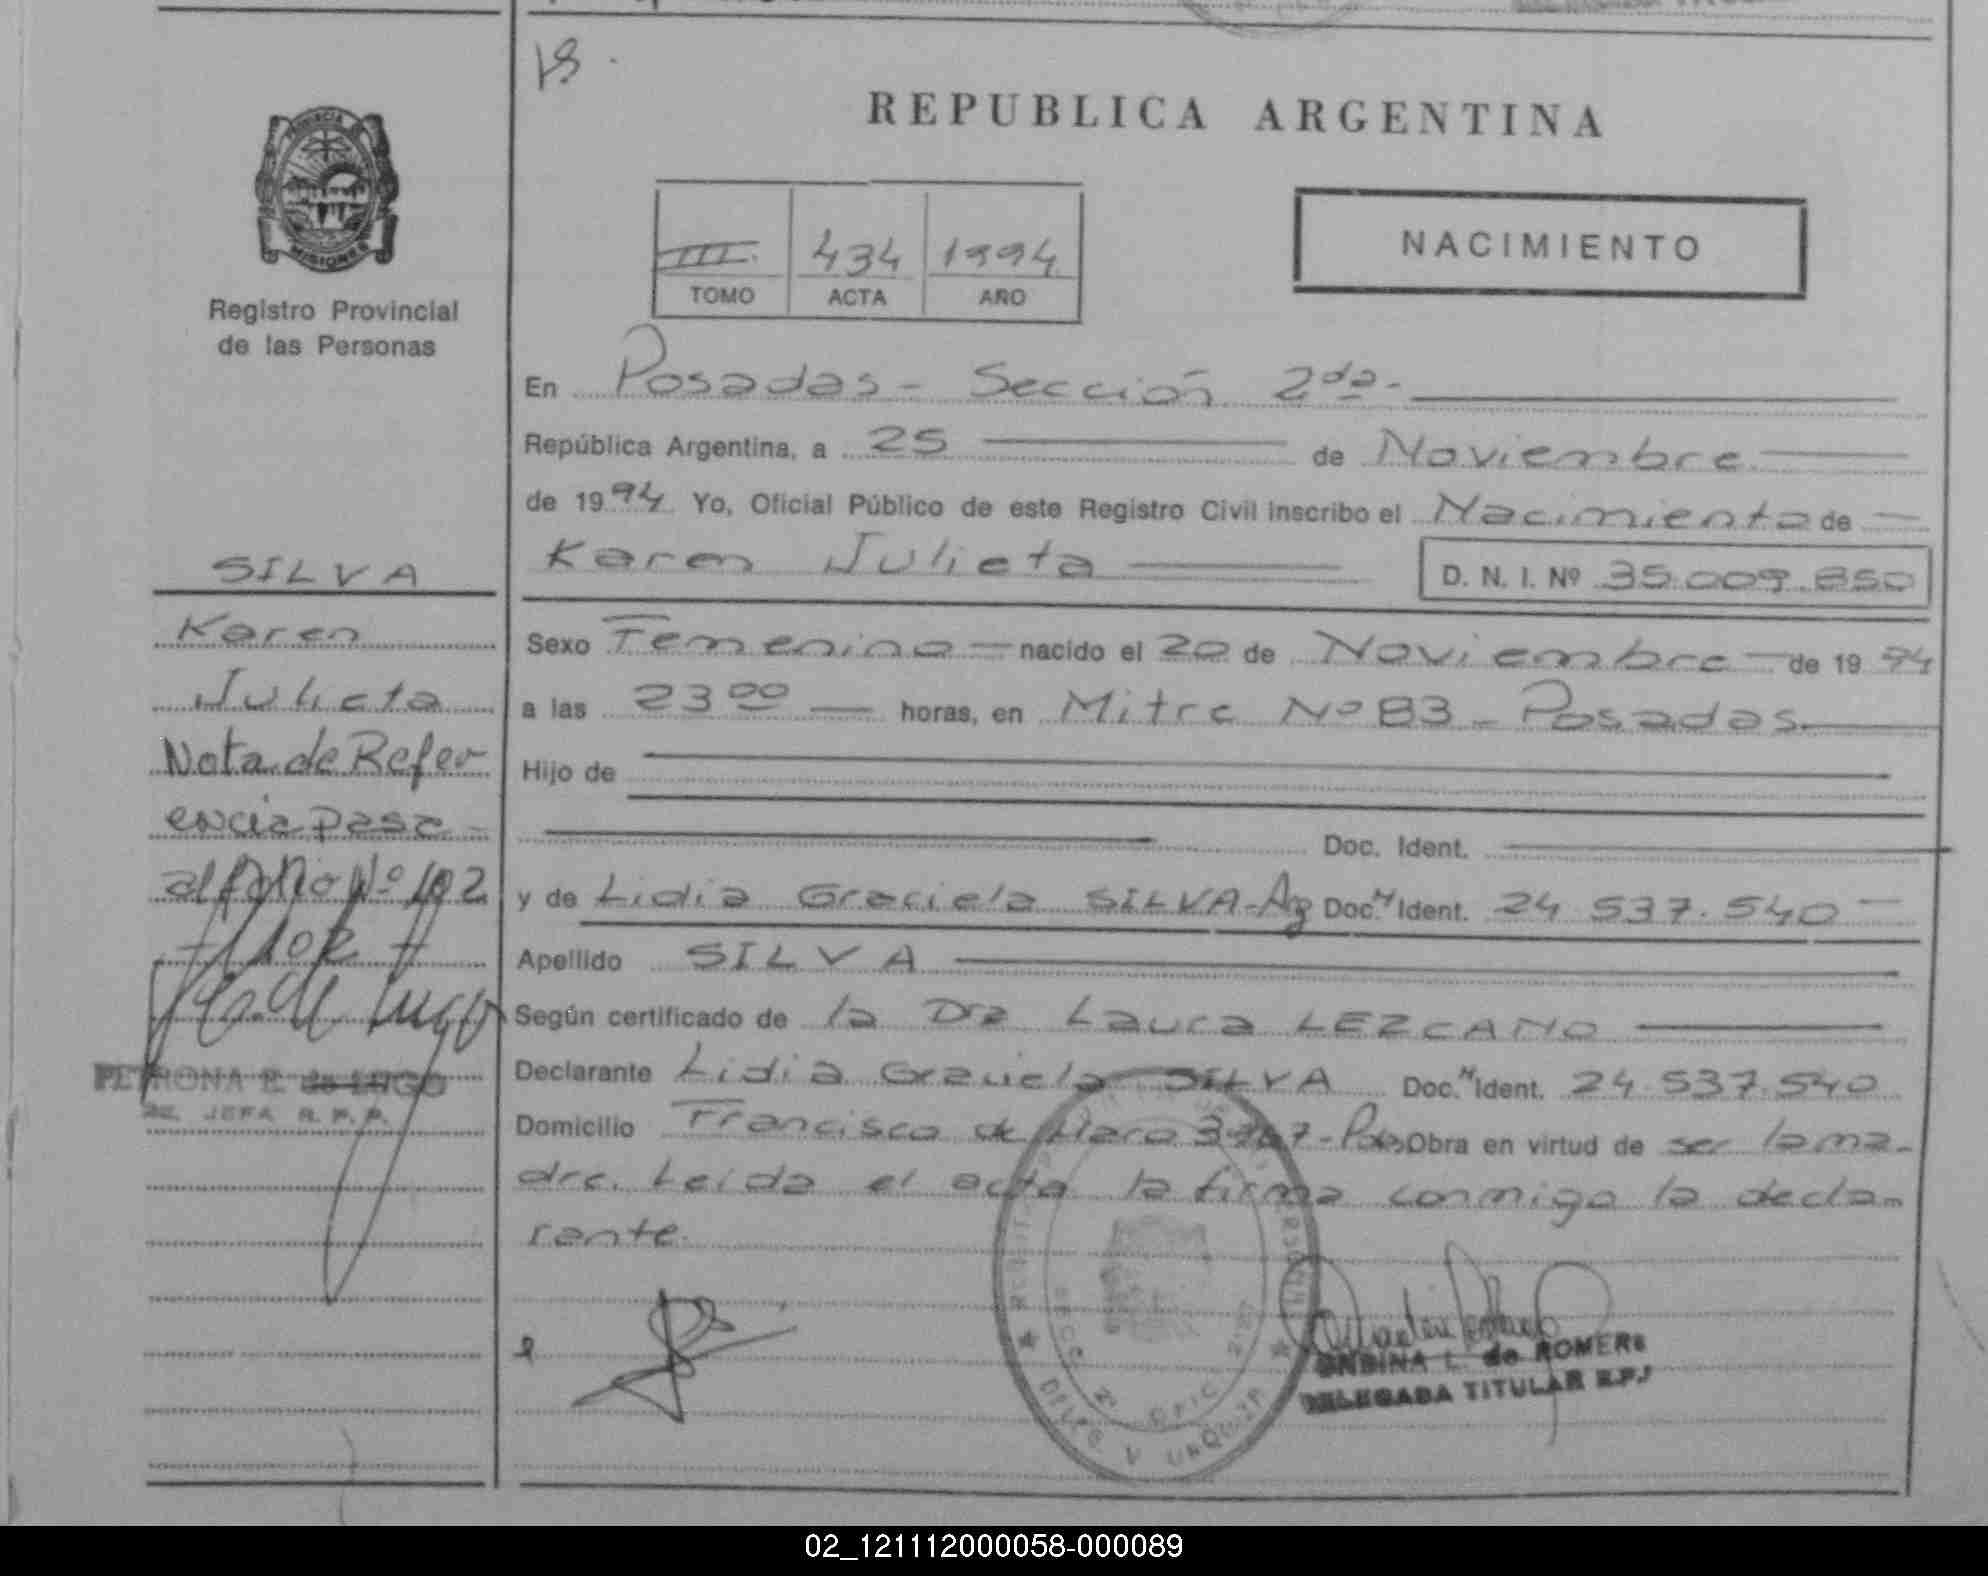 REPUBLICA ARGENTINA
PROVINCIA DE
MISIONES
Registro Provincial
de las Personas
III. 434 1994
TOMO ACTA AÑO
NACIMIENTO
En Posadas - Sección 2da -
República Argentina, a 25 de Noviembre
de 1994 Yo, Oficial Público de este Registro Civil inscribo el Nacimiento de
Karen Julieta D. N. I. Nº 35.009.850
Sexo Femenino nacido el 20 de Noviembre de 1994
a las 23 00 horas, en Mitre Nº 83 - Posadas.
Hijo de
Doc. Ident.
y de Lidia Graciela SILVA - Arg Doc. Ident. 24 537.540
Apellido SILVA
Según certificado de la Dra Laura LEZCANO
Declarante Lidia Graciela SILVA Doc. Ident. 24.537.540
Domicilio Francisco de Haro - Pdas Obra en virtud de ser la ma-
dre. Leída el acta la firma conmigo la decla-
rante.
SILVA
Karen
Julieta
Nota de Refer
encia pasa
al folio Nº 102
- 102 -
PETRONA E. de LUGO
JEFA R. P. P.
ONDINA L. de ROMERO
DELEGADA TITULAR R.P.P
DELEG. V. URQUIZA
SECC. 2ª OFIC.
02_121112000058-000089